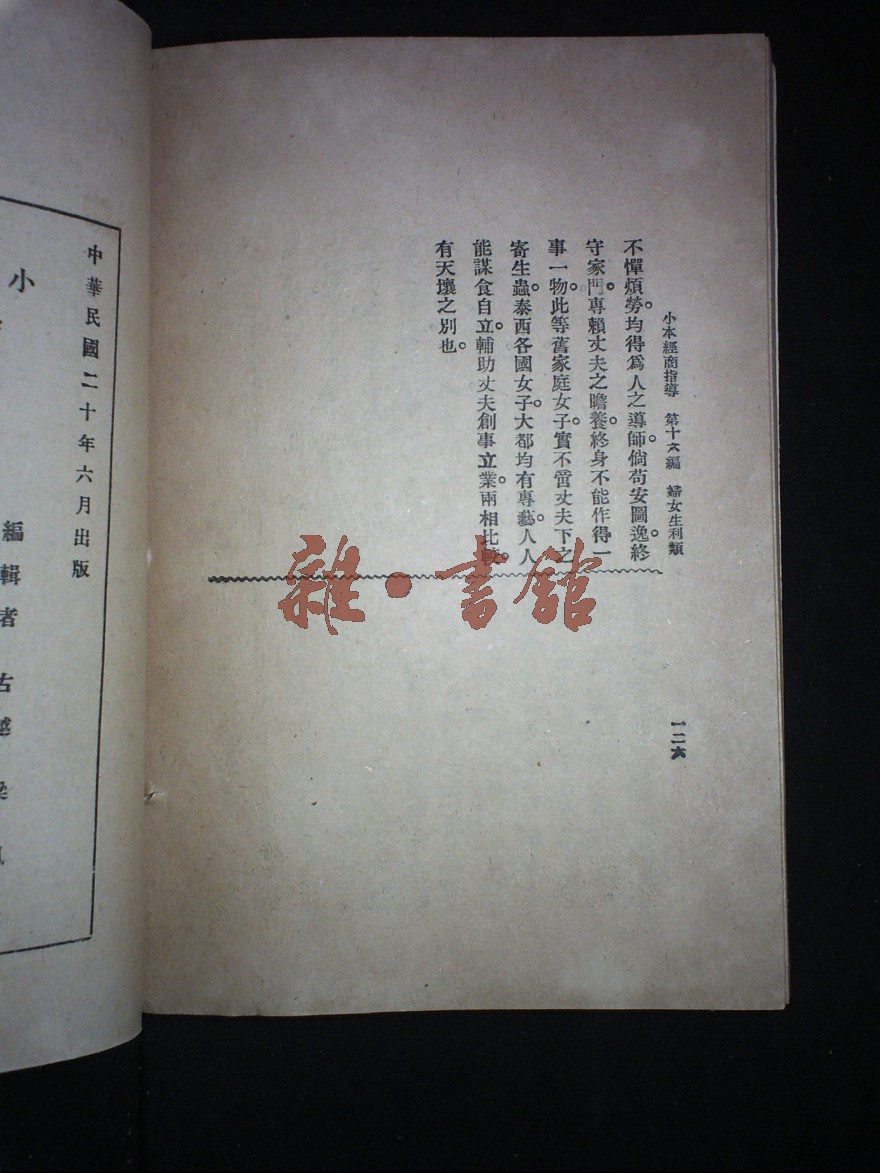 小本經商指導　第十六編　婦女生利類
不憚煩勞。均得爲人之導師。倘苟安圖逸。終
守家門。專賴丈夫之瞻養。終身不能作得一
事一物。此等舊家庭女子。實不啻丈夫下之
寄生蟲。泰西各國女子。大都均有專藝。人人
能謀食自立。輔助丈夫創事立業。兩相比較。
有天壤之別也。
一二六
雜·書館
中華民國二十年六月出版
小
編輯者　古越